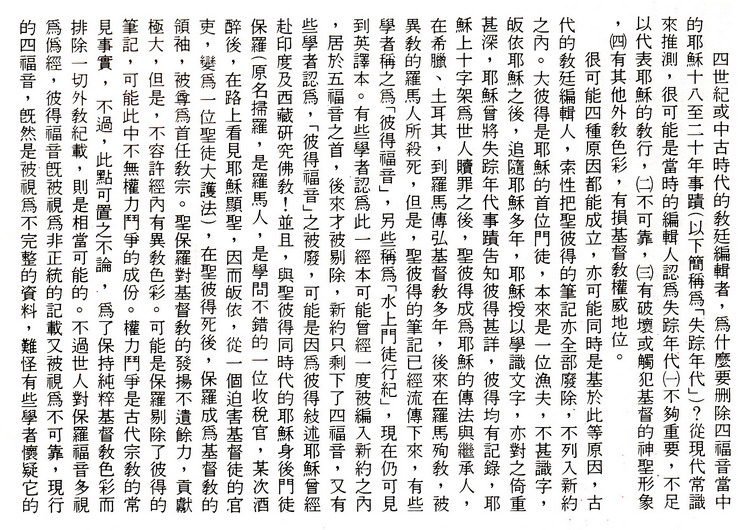 四世紀或中古時代的教廷編輯者，爲什麼要刪除四福音當中
的耶穌十八至二十年事蹟(以下簡稱爲「失踪年代」)？從現代常識
來推測，很可能是當時的編輯人認爲失踪年代㈠不夠重要，不足
以代表耶穌的教行，㈡不可靠，㈢有破壞或觸犯基督的神聖形象
，㈣有其他外教色彩，有損基督教權威地位。
很可能四種原因都能成立，亦可能同時是基於此等原因，古
代的教廷編輯人，索性把聖彼得的筆記亦全部廢除，不列入新約
之內。大彼得是耶穌的首位門徒，本來是一位漁夫，不甚識字，
皈依耶穌之後，追隨耶穌多年，耶穌授以學識文字，亦對之倚重
甚深，耶穌曾將失踪年代事蹟告知彼得甚詳，彼得均有記錄，耶
穌上十字架爲世人贖罪之後，聖彼得成爲耶穌的傳法與繼承人，
在希臘、土耳其，到羅馬傳弘基督教多年，後來在羅馬殉教，被
異教的羅馬人所殺死，但是，聖彼得的筆記已經流傳下來，有些
學者稱之爲「彼得福音」，另些稱爲「水上門徒行紀」，現在仍可見
到英譯本。有些學者認爲此一經本可能曾經一度被編入新約之內
，居於五福音之首，後來才被剔除，新約只剩下了四福音，又有
些學者認爲，「彼得福音」之被廢，可能是因爲彼得敍述耶穌曾經
赴印度及西藏研究佛教！並且，與聖彼得同時代的耶穌身後門徒
保羅(原名掃羅，是羅馬人，是學問不錯的一位收稅官，某次酒
醉後，在路上看見耶穌顯聖，因而皈依，從一個迫害基督徒的官
吏，變爲一位聖徒大護法)，在聖彼得死後，保羅成爲基督教的
領袖，被尊爲首任教宗。聖保羅對基督教的發揚不遺餘力，貢獻
極大，但是，不容許經內有異教色彩。可能是保羅剔除了彼得的
筆記，可能此中不無權力鬥爭的成份。權力鬥爭是古代宗教的常
見事實，不過，此點可置之不論，爲了保持純粹基督教色彩而
排除一切外教紀載，則是相當可能的。不過世人對保羅福音多視
爲僞經，彼得福音既被視爲非正統的記載又被視爲不可靠，現行
的四福音，既然是被視爲不完整的資料，難怪有些學者懷疑它的